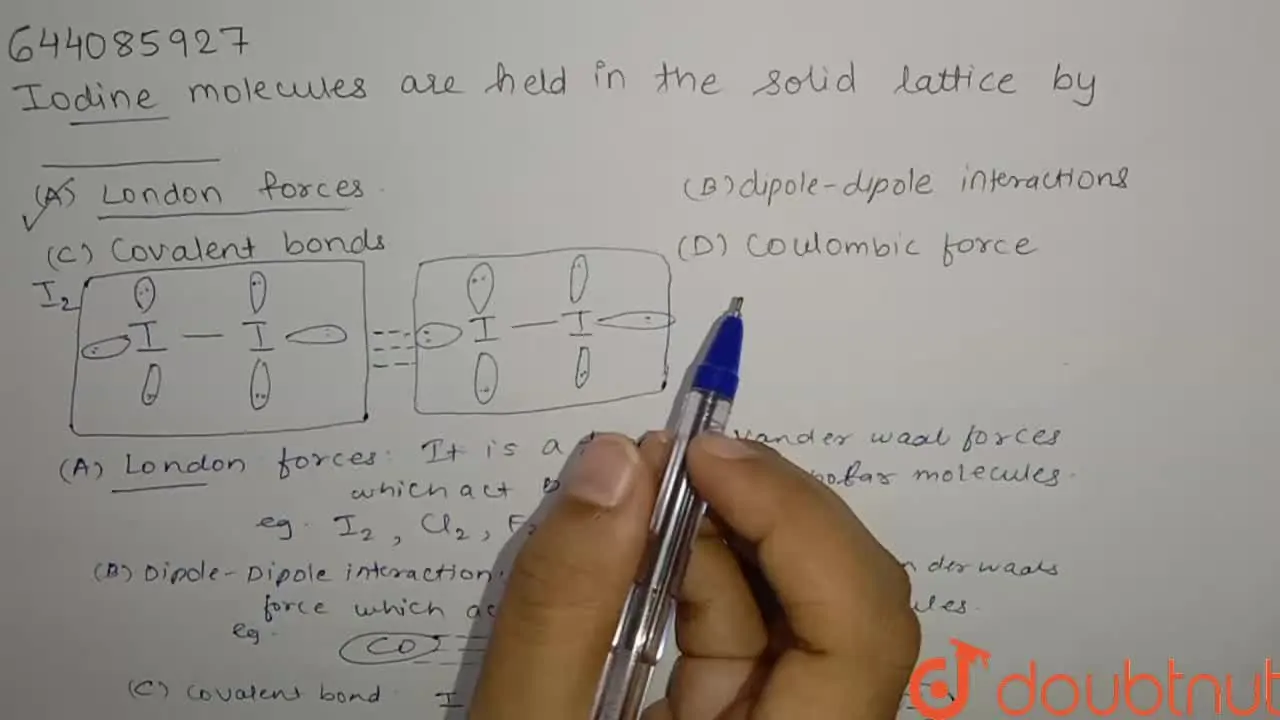 644085927
Iodine molecules are held in the solid lattice by
(A) London forces.
(B) dipole-dipole interactions
(C) Covalent bonds
(D) Coulombic force
I2
I — I
I — I
(A) London forces: It is a vander waal forces
which act polar molecules.
eg. I2, Cl2, F2
(B) Dipole-Dipole interaction: der waals
force which
eg.
CO
(C) Covalent bond: I
doubtnut